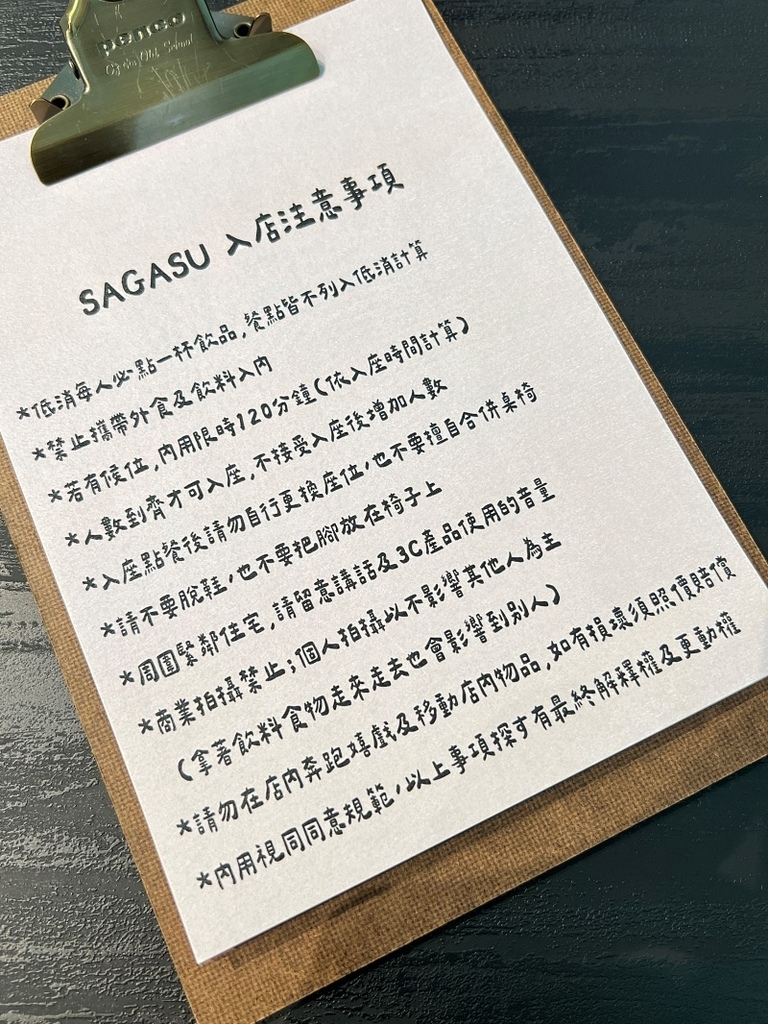 penco
SAGASU 入店注意事項
*低消每人必點一杯飲品,餐點皆不列入低消計算
*禁止攜帶外食及飲料入內
*若有候位,內用限時120分鐘(依入座時間計算)
*人數到齊才可入座,不接受入座後增加人數
*入座點餐後請勿自行更換座位,也不要擅自合併桌椅
*請不要脫鞋,也不要把腳放在椅子上
*周圍緊鄰住宅,請留意講話及3C產品使用的音量
*商業拍攝禁止;個人拍攝以不影響其他人為主
(拿著飲料食物走來走去也會影響到別人)
*請勿在店內奔跑嬉戲及移動店內物品,如有損壞須照價賠償
*內用視同同意規範,以上事項探す有最終解釋權及更動權